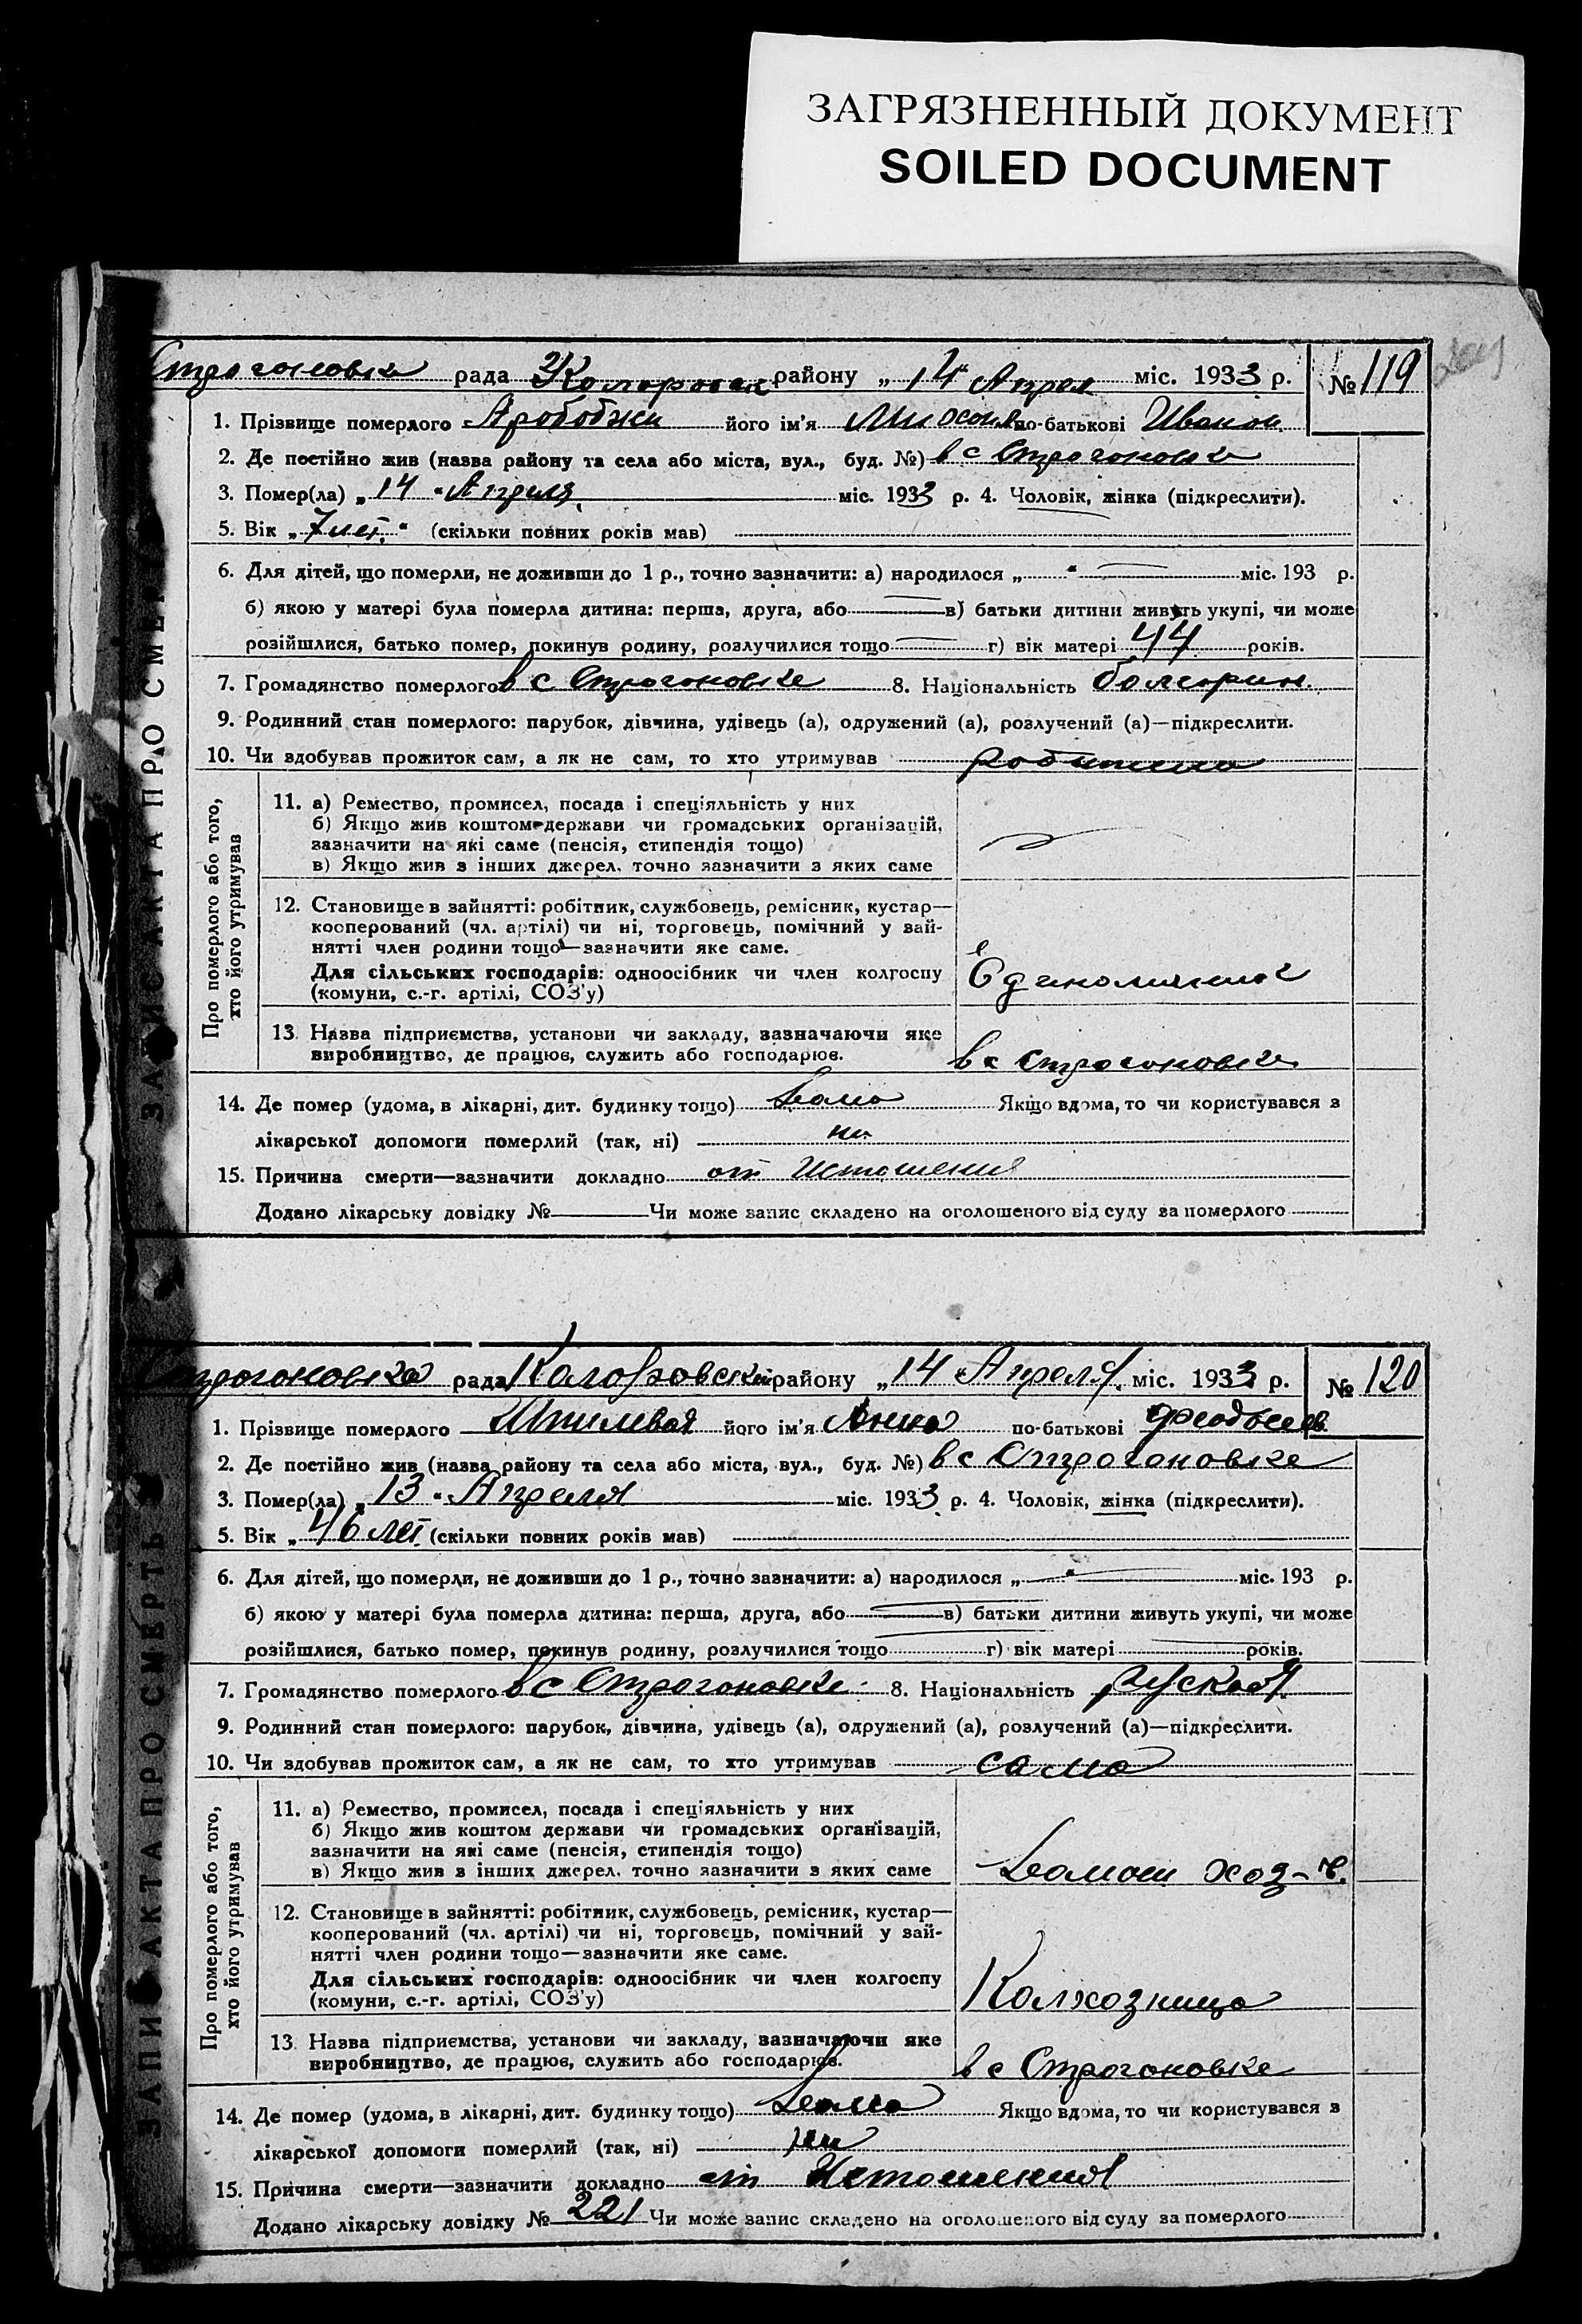 ЗАГРЯЗНЕННЫЙ ДОКУМЕНТ
SOILED DOCUMENT
Строгоновка рада району „14“ Апрел міс. 1933 р. № 119
1. Прізвище померлого його ім'я по-батькові Иванов.
2. Де постійно жив (назва району та села або міста, вул., буд. №) в с Строгоновке
3. Помер(ла) „14“ Апреля міс. 1933 р. 4. Чоловік, жінка (підкреслити).
5. Вік „7 лет.“ (скільки повних років мав)
6. Для дітей, що померли, не доживши до 1 р., точно зазначити: а) народилося „ “ міс. 193 р.
б) якою у матері була померла дитина: перша, друга, або в) батьки дитини живуть укупі, чи може
розійшлися, батько помер, покинув родину, розлучилися тощо г) вік матері 44 років.
7. Громадянство померлого в с Строгоновке 8. Національність болгарин.
9. Родинний стан померлого: парубок, дівчина, удівець (а), одружений (а), розлучений (а)—підкреслити.
10. Чи здобував прожиток сам, а як не сам, то хто утримував
Про померлого або того,
хто його утримував
11. а) Ремество, промисел, посада і спеціяльність у них
б) Якщо жив коштом держави чи громадських організацій,
зазначити на які саме (пенсія, стипендія тощо)
в) Якщо жив з інших джерел, точно зазначити з яких саме
12. Становище в зайнятті: робітник, службовець, ремісник, кустар—
кооперований (чл. артілі) чи ні, торговець, помічний у зай-
нятті член родини тощо—зазначити яке саме.
Для сільських господарів: одноосібник чи член колгоспу
(комуни, с.-г. артілі, СОЗ'у)
13. Назва підприємства, установи чи закладу, зазначаючи яке
виробництво, де працює, служить або господарює. в с Строгоновке
14. Де помер (удома, в лікарні, дит. будинку тощо) дома Якщо вдома, то чи користувався з
лікарської допомоги померлий (так, ні) ни
15. Причина смерти—зазначити докладно от Истошения
Додано лікарську довідку № Чи може запис складено на оголошеного від суду за померлого
ЗАПИС АКТА ПРО СМЕРТЬ
Строгоновка рада району „14 Апреля міс. 1933 р. № 120
1. Прізвище померлого його ім'я Анна по-батькові
2. Де постійно жив (назва району та села або міста, вул., буд. №) в с Строгоновке
3. Помер(ла) „13“ Апреля міс. 1933 р. 4. Чоловік, жінка (підкреслити).
5. Вік „46 лет (скільки повних років мав)
6. Для дітей, що померли, не доживши до 1 р., точно зазначити: а) народилося „ “ міс. 193 р.
б) якою у матері була померла дитина: перша, друга, або в) батьки дитини живуть укупі, чи може
розійшлися, батько помер, покинув родину, розлучилися тощо г) вік матері років.
7. Громадянство померлого в с Строгоновке 8. Національність руская
9. Родинний стан померлого: парубок, дівчина, удівець (а), одружений (а), розлучений (а)—підкреслити.
10. Чи здобував прожиток сам, а як не сам, то хто утримував сама
Про померлого або того,
хто його утримував
11. а) Ремество, промисел, посада і спеціяльність у них
б) Якщо жив коштом держави чи громадських організацій,
зазначити на які саме (пенсія, стипендія тощо)
в) Якщо жив з інших джерел, точно зазначити з яких саме
12. Становище в зайнятті: робітник, службовець, ремісник, кустар—
кооперований (чл. артілі) чи ні, торговець, помічний у зай-
нятті член родини тощо—зазначити яке саме.
Для сільських господарів: одноосібник чи член колгоспу
(комуни, с.-г. артілі, СОЗ'у) Колхозница
13. Назва підприємства, установи чи закладу, зазначаючи яке
виробництво, де працює, служить або господарює. в с Строгоновке
14. Де помер (удома, в лікарні, дит. будинку тощо) дома Якщо вдома, то чи користувався з
лікарської допомоги померлий (так, ні) ни
15. Причина смерти—зазначити докладно от Истошения
Додано лікарську довідку № 221 Чи може запис складено на оголошеного від суду за померлого
ЗАПИС АКТА ПРО СМЕРТЬ